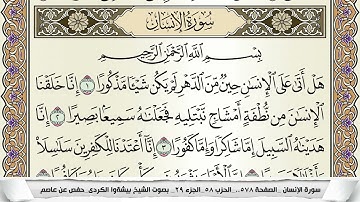 سورة الإنسان
بِسْمِ اللَّهِ الرَّحْمَٰنِ الرَّحِيمِ
هَلْ أَتَىٰ عَلَى الْإِنسَانِ حِينٌ مِّنَ الدَّهْرِ لَمْ يَكُن شَيْئًا مَّذْكُورًا ١ إِنَّا خَلَقْنَا
الْإِنسَانَ مِن نُّطْفَةٍ أَمْشَاجٍ نَّبْتَلِيهِ فَجَعَلْنَاهُ سَمِيعًا بَصِيرًا ٢ إِنَّا
هَدَيْنَاهُ السَّبِيلَ إِمَّا شَاكِرًا وَإِمَّا كَفُورًا ٣ إِنَّا أَعْتَدْنَا لِلْكَافِرِينَ سَلَاسِلَا
سورة الإنسان _الصفحة ٥٧٨... الحزب ٥٨ _الجزء ٢٩_ بصوت الشيخ بيشةوا الكردي_ حفص عن عاصم